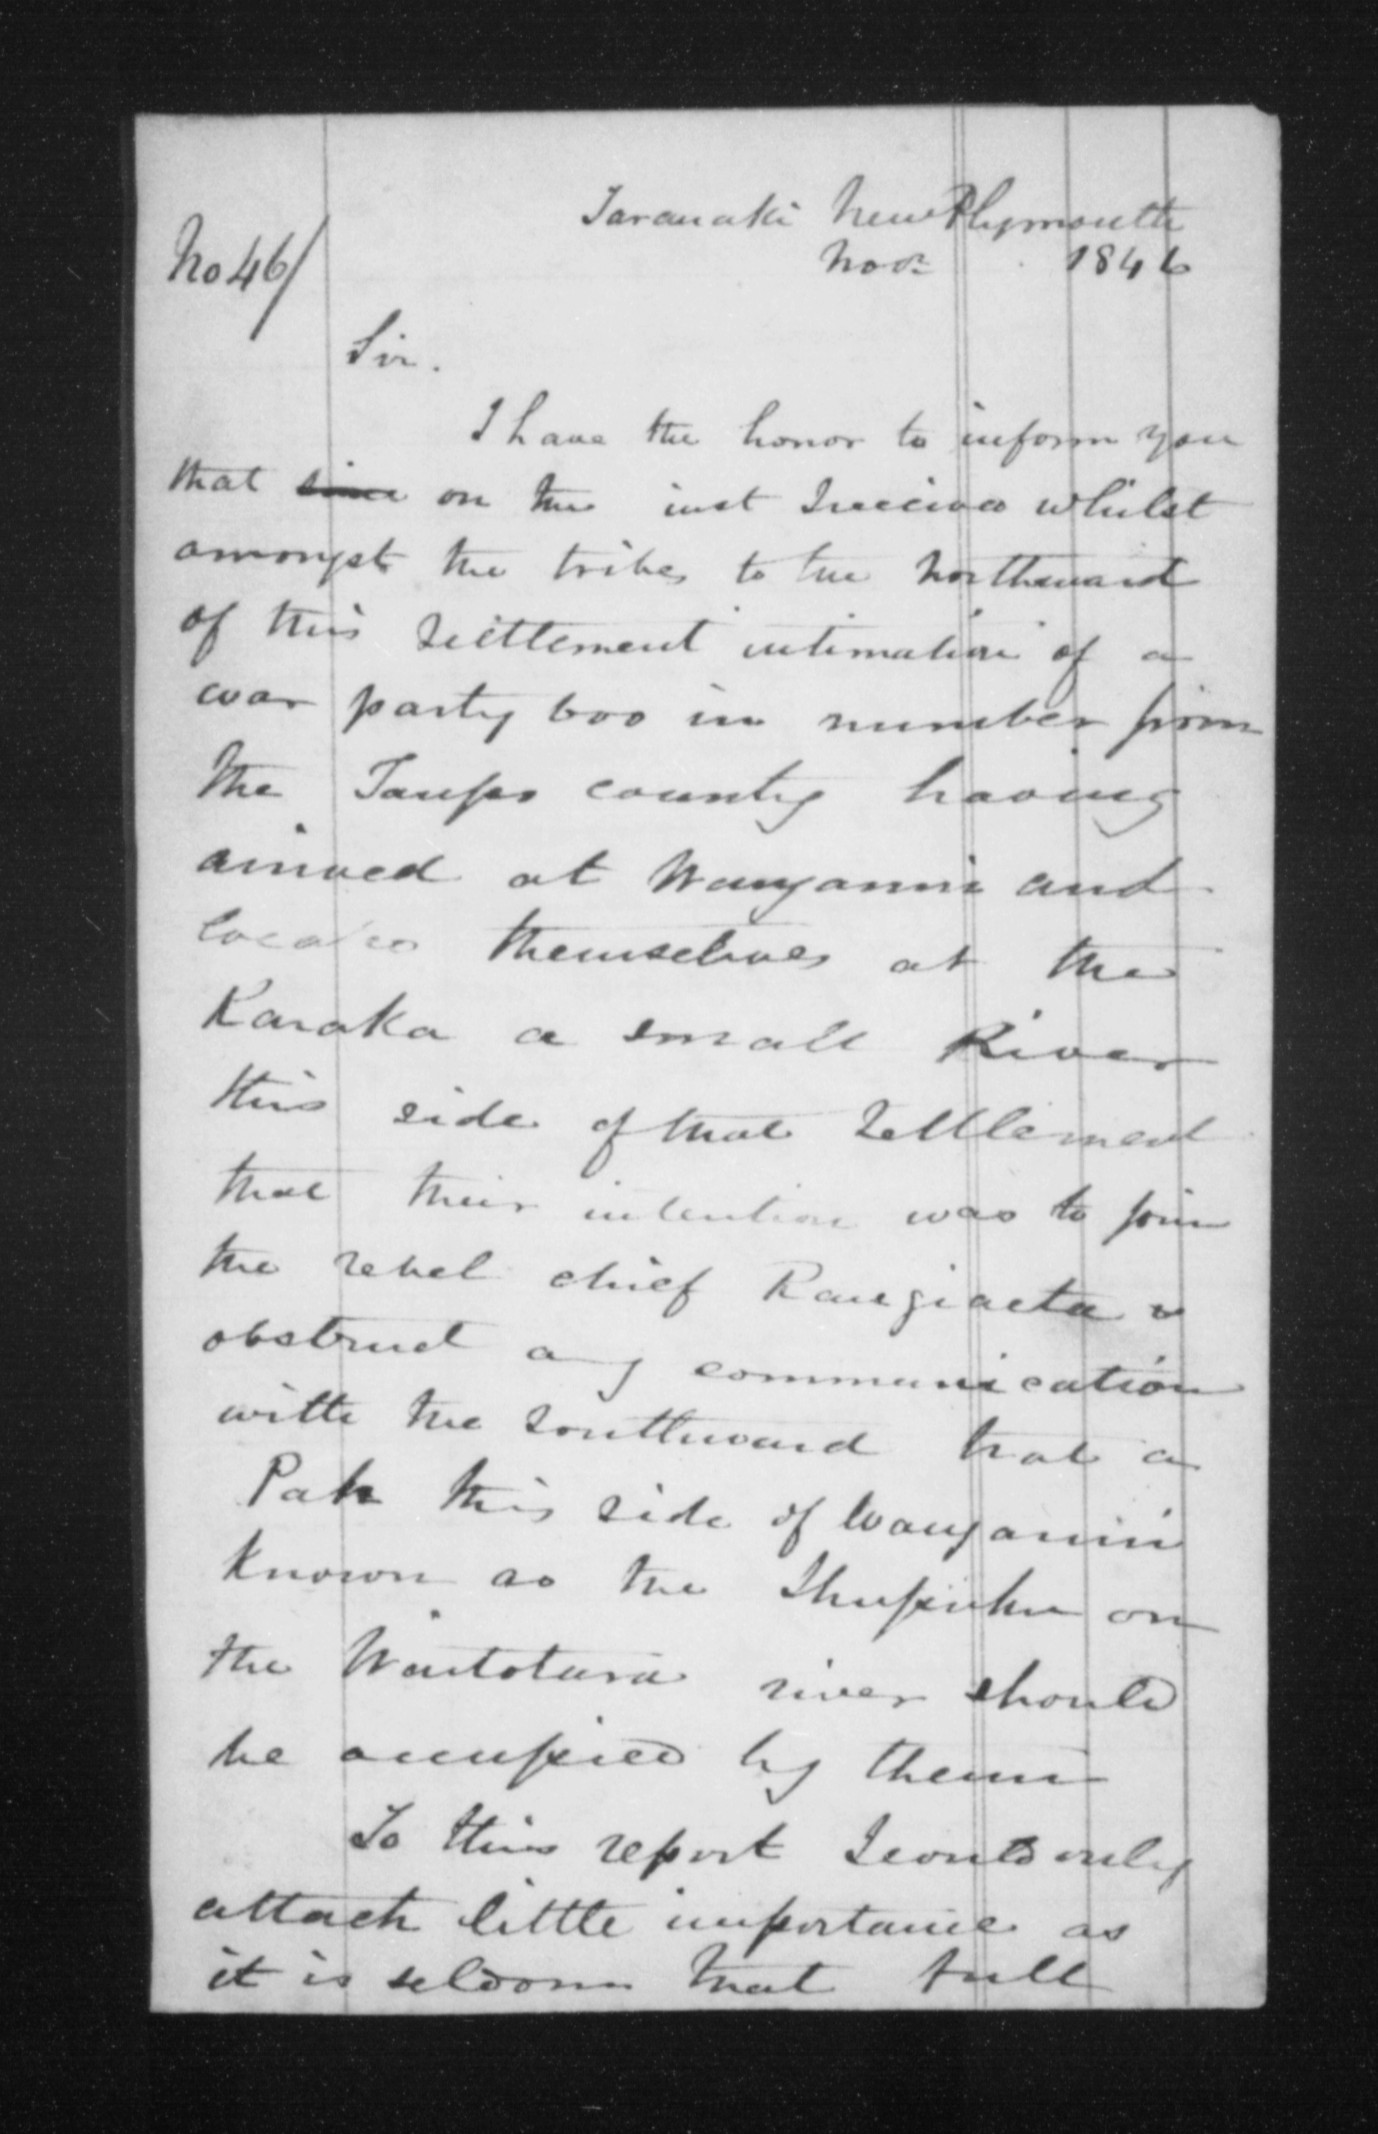 Taranaki New Plymouth
No 46/
Novr 1846
Sir.
I have the honor to inform you
that since on the inst I received whilst
amongst the tribes to the Northward
of this Settlement intimation of a
war party 600 in number from
the Taupo country having
arrived at Wanganui and
located themselves at the
Karaka a small River
this side of that Settlement
that their intention was to join
the rebel chief Rangiaeta &
obstruct any communication
with the Southward that a
Pah this side of Wanganui
known as the Ihupuku on
the Waitotara river should
be occupied by them
To this report I could only
attach little importance as
it is seldom that full